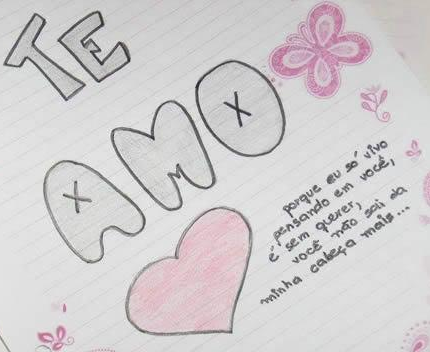 TE
AMO
porque eu só vivo
pensando em você,
é sem querer,
você não sai da
minha cabeça mais...